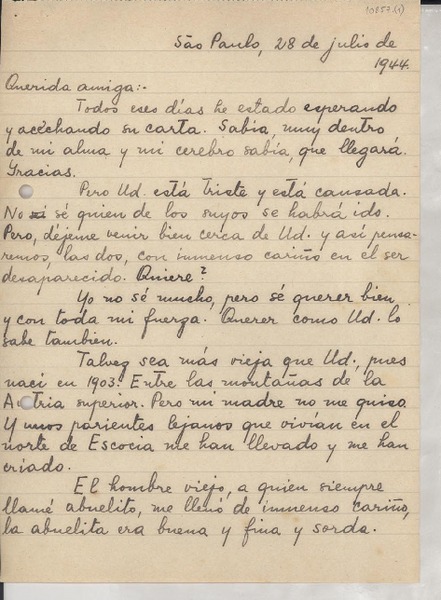 10857(1)
São Paulo, 28 de julio de
1944.
Querida amiga:-
Todos eses días he estado esperando
y acechando su carta. Sabía, muy dentro
de mi alma y mi cerebro sabía, que llegará.
Gracias.
Pero Ud. está triste y está cansada.
No sé quien de los suyos se habrá ido.
Pero, déjeme venir bien cerca de Ud. y así pensa-
remos, las dos, con inmenso cariño en el ser
desaparecido. Quiere?
Yo no sé mucho, pero sé querer bien
y con toda mi fuerza. Querer como Ud. lo
sabe tambien.
Talvez sea más vieja que Ud., pues
nací en 1903. Entre las montañas de la
Austria superior. Pero mi madre no me quiso.
Y unos parientes lejanos que vivían en el
norte de Escocia me han llevado y me han
criado.
El hombre viejo, a quien siempre
llamé abuelito, me llenó de inmenso cariño,
la abuelita era buena y fina y sorda.